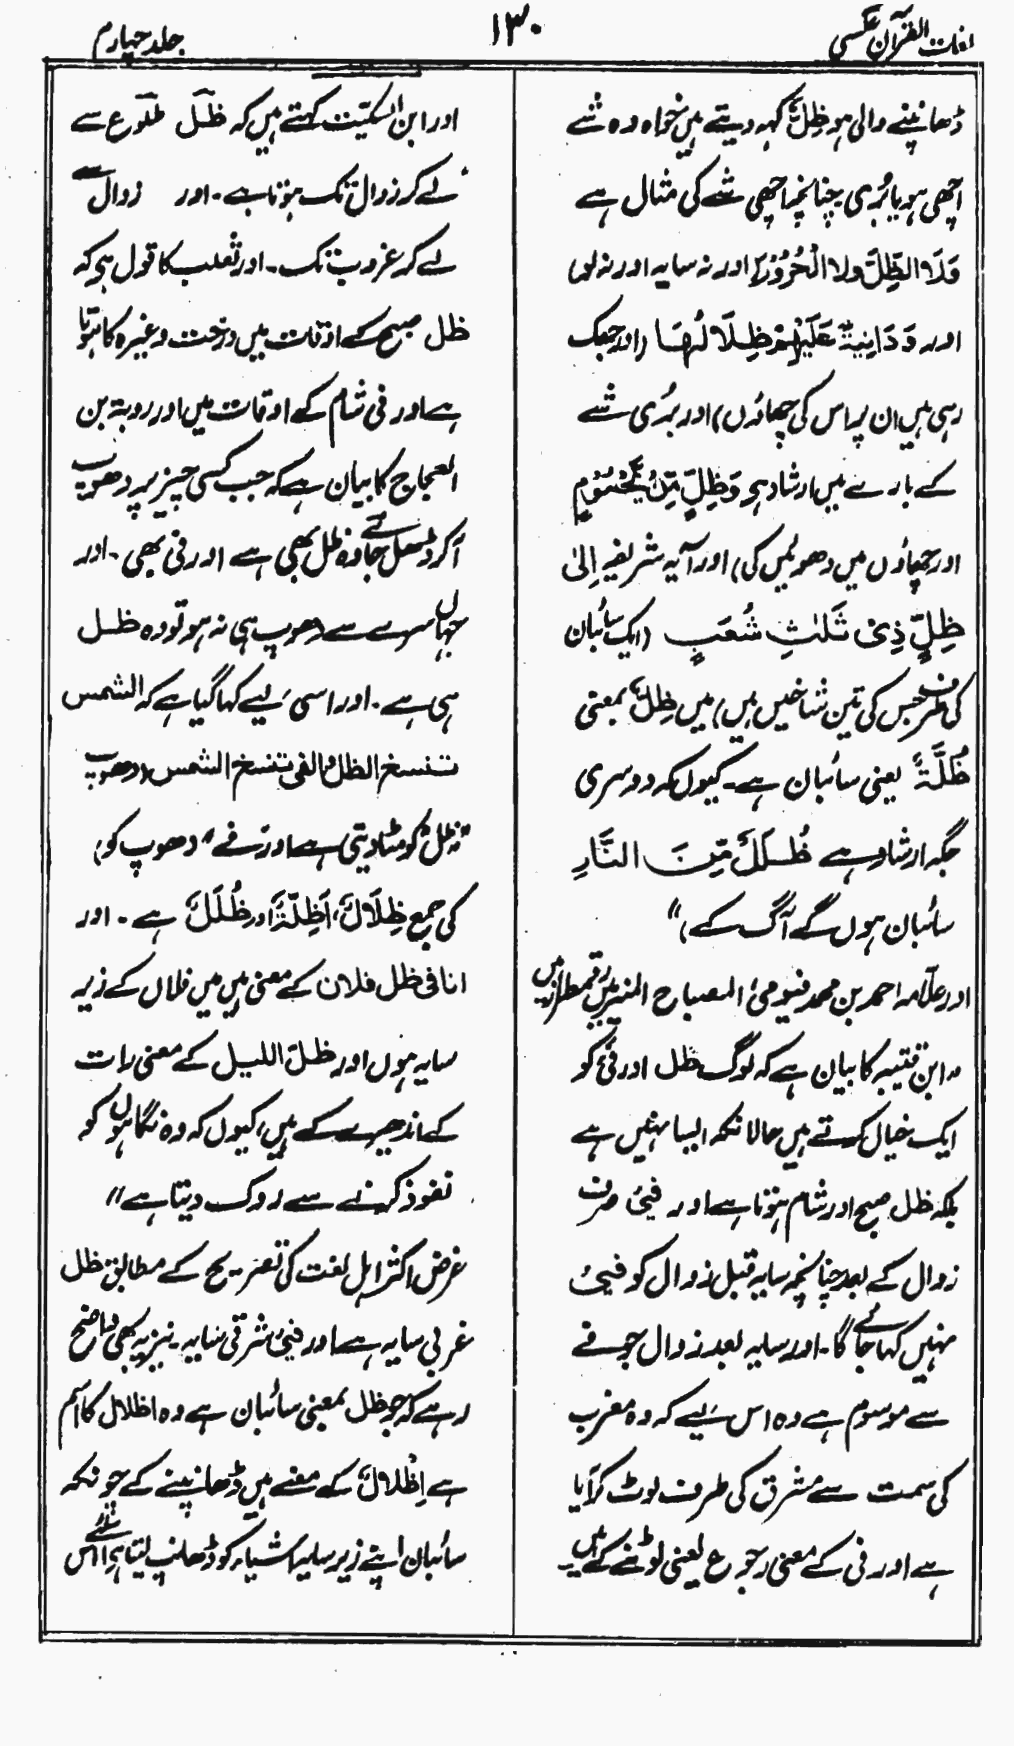 لغات القرآن عکسی
۱۳۰
جلد چہارم
ڈھانپنے والی ہو ظِلٌّ کہہ دیتے ہیں خواہ وہ شے
اچھی ہو یا بُری چنانچہ اچھی شے کی مثال ہے
وَلَا الظِّلُّ وَلَا الْحَرُوْرُ (اور نہ سایہ اور نہ لو)
اور وَدَانِیَۃً عَلَیْہِمْ ظِلَالُہَا (اور جھک
رہی ہیں ان پر اس کی چھاؤں) اور بُری شے
کے بارے میں ارشاد ہی وَظِلٍّ مِّنْ یَّحْمُوْمٍ
اور چھاؤں میں دھوئیں کی) اور آیہ شریفہ اِلٰی
ظِلٍّ ذِیْ ثَلٰثِ شُعَبٍ (ایک سائبان
کی طرف جس کی تین شاخیں ہیں) میں ظِلٌّ بمعنی
ظُلَّۃٌ یعنی سائبان ہے۔ کیوں کہ دوسری
جگہ ارشاد ہے ظُلَلٌ مِّنَ النَّارِ
سائبان ہوں گے آگ کے)"
اور علامہ احمد بن محمد فیومیُ المصباح المنیر میں رقمطراز ہیں
"ابن قتیبہ کا بیان ہے کہ لوگ ظل اور فَیْء کو
ایک خیال کرتے ہیں حالانکہ ایسا نہیں ہے
بلکہ ظل صبح اور شام ہوتا ہے اور فیئُ صرف
زوال کے بعد چنانچہ سایہ قبل زوال کو فیئُ
نہیں کہا جائے گا۔ اور سایہ بعد زوال جو فے
سے موسوم ہے وہ اس لیے کہ وہ مغرب
کی سمت سے مشرق کی طرف لوٹ کر آیا
ہے اور فی کے معنی رجوع یعنی لوٹنے کے ہیں۔
اور ابن السکیت کہتے ہیں کہ ظل طلوع سے
لے کر زوال تک ہوتا ہے۔ اور زوال سے
لے کر غروب تک۔ اور ثعلب کا قول ہی کہ
ظل صبح کے اوقات میں درخت وغیرہ کا ہوتا
ہے اور فی شام کے اوقات میں اور روبۃ بن
العجاج کا بیان ہے کہ جب کسی چیز پر دھوپ
آکر ڈھل جائے وہ ظل بھی ہے اور فی بھی۔ اور
جہاں سرے سے دھوپ ہی نہ ہو تو وہ ظل
ہی ہے۔ اور اسی لیے کہا گیا ہے کہ الشمس
تنسخ الظل والفی تنسخ الشمس (دھوپ
"ظل" کو مٹا دیتی ہے اور "فے" دھوپ کو)
کی جمع ظِلَالٌ، اَظِلَّۃٌ اور ظُلَلٌ ہے۔ اور
انا فی ظل فلان کے معنی ہیں میں فلاں کے زیر
سایہ ہوں اور ظل اللیل کے معنی رات
کے اندھیرے کے ہیں، کیوں کہ وہ نگاہوں کو
نفوذ کرنے سے روک دیتا ہے"
غرض اکثر اہل لغت کی تصریح کے مطابق ظل
غربی سایہ ہے اور فیئُ شرقی سایہ۔ نیز یہ بھی واضح
رہے کہ جو ظل بمعنی سائبان ہے وہ اظلال کا اسم
ہے اِظْلَالٌ کے معنے ہیں ڈھانپنے کے چونکہ
سائبان اپنے زیر سایہ اشیاء کو ڈھانپ لیتا ہی اس لئے